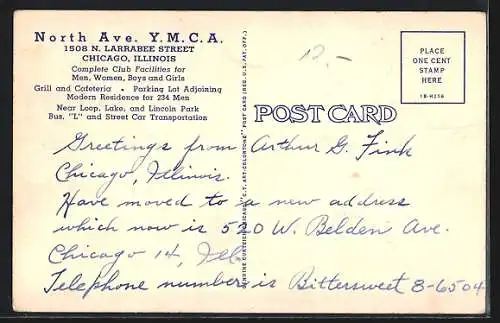 North Ave. Y.M.C.A.
1508 N. LARRABEE STREET
CHICAGO, ILLINOIS
Complete Club Facilities for
Men, Women, Boys and Girls
Grill and Cafeteria • Parking Lot Adjoining
Modern Residence for 234 Men
Near Loop, Lake, and Lincoln Park
Bus, "L" and Street Car Transportation
12.-
PLACE
ONE CENT
STAMP
HERE
POST CARD
Greetings from Arthur G. Fink
Chicago, Illinois.
Have moved to a new address
which now is 520 W. Belden Ave.
Chicago 14, Ill.
Telephone number is Bittersweet 8-6504